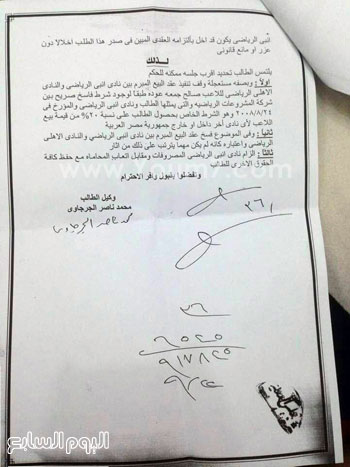 انبى الرياضى يكون قد اخل بالتزامه العقدى المبين فى صدر هذا الطلب اخلالا دون
عزر او مانع قانونى
لذلك
يلتمس الطالب تحديد اقرب جلسه ممكنه للحكم
اولاً : وبصفه مستعجلة وقف تنفيذ عقد البيع المبرم بين نادى انبى الرياضى والنادى
الاهلى الرياضى للاعب صالح جمعه عوده طبقا لوجود شرط فاسخ صريح بين
شركة المشروعات الرياضيه والتى يمثلها الطالب ونادى انبى الرياضى والمؤرخ فى
٢٠٠٨/٨/٢٤ وهو الشرط الخاص بحصول الطالب على نسبة ٢٠% من قيمة بيع
اللاعب لأى نادى آخر داخل او خارج جمهورية مصر العربية
ثانياً : وفى الموضوع فسخ عقد البيع المبرم بين نادى انبى الرياضى والنادى الاهلى
الرياضى واعتباره كأنه لم يكن مهما يترتب على ذلك من اثار
ثالثا : الزام نادى انبى الرياضى المصروفات ومقابل اتعاب المحاماه مع حفظ كافة
الحقوق الاخرى للطالب
وتفضلوا بقبول وافر الاحترام
وكيل الطالب
محمد ناصر الجرجاوى
محمد ناصر الجرجاوى
٣٦١
٣٦
اليوم السابع